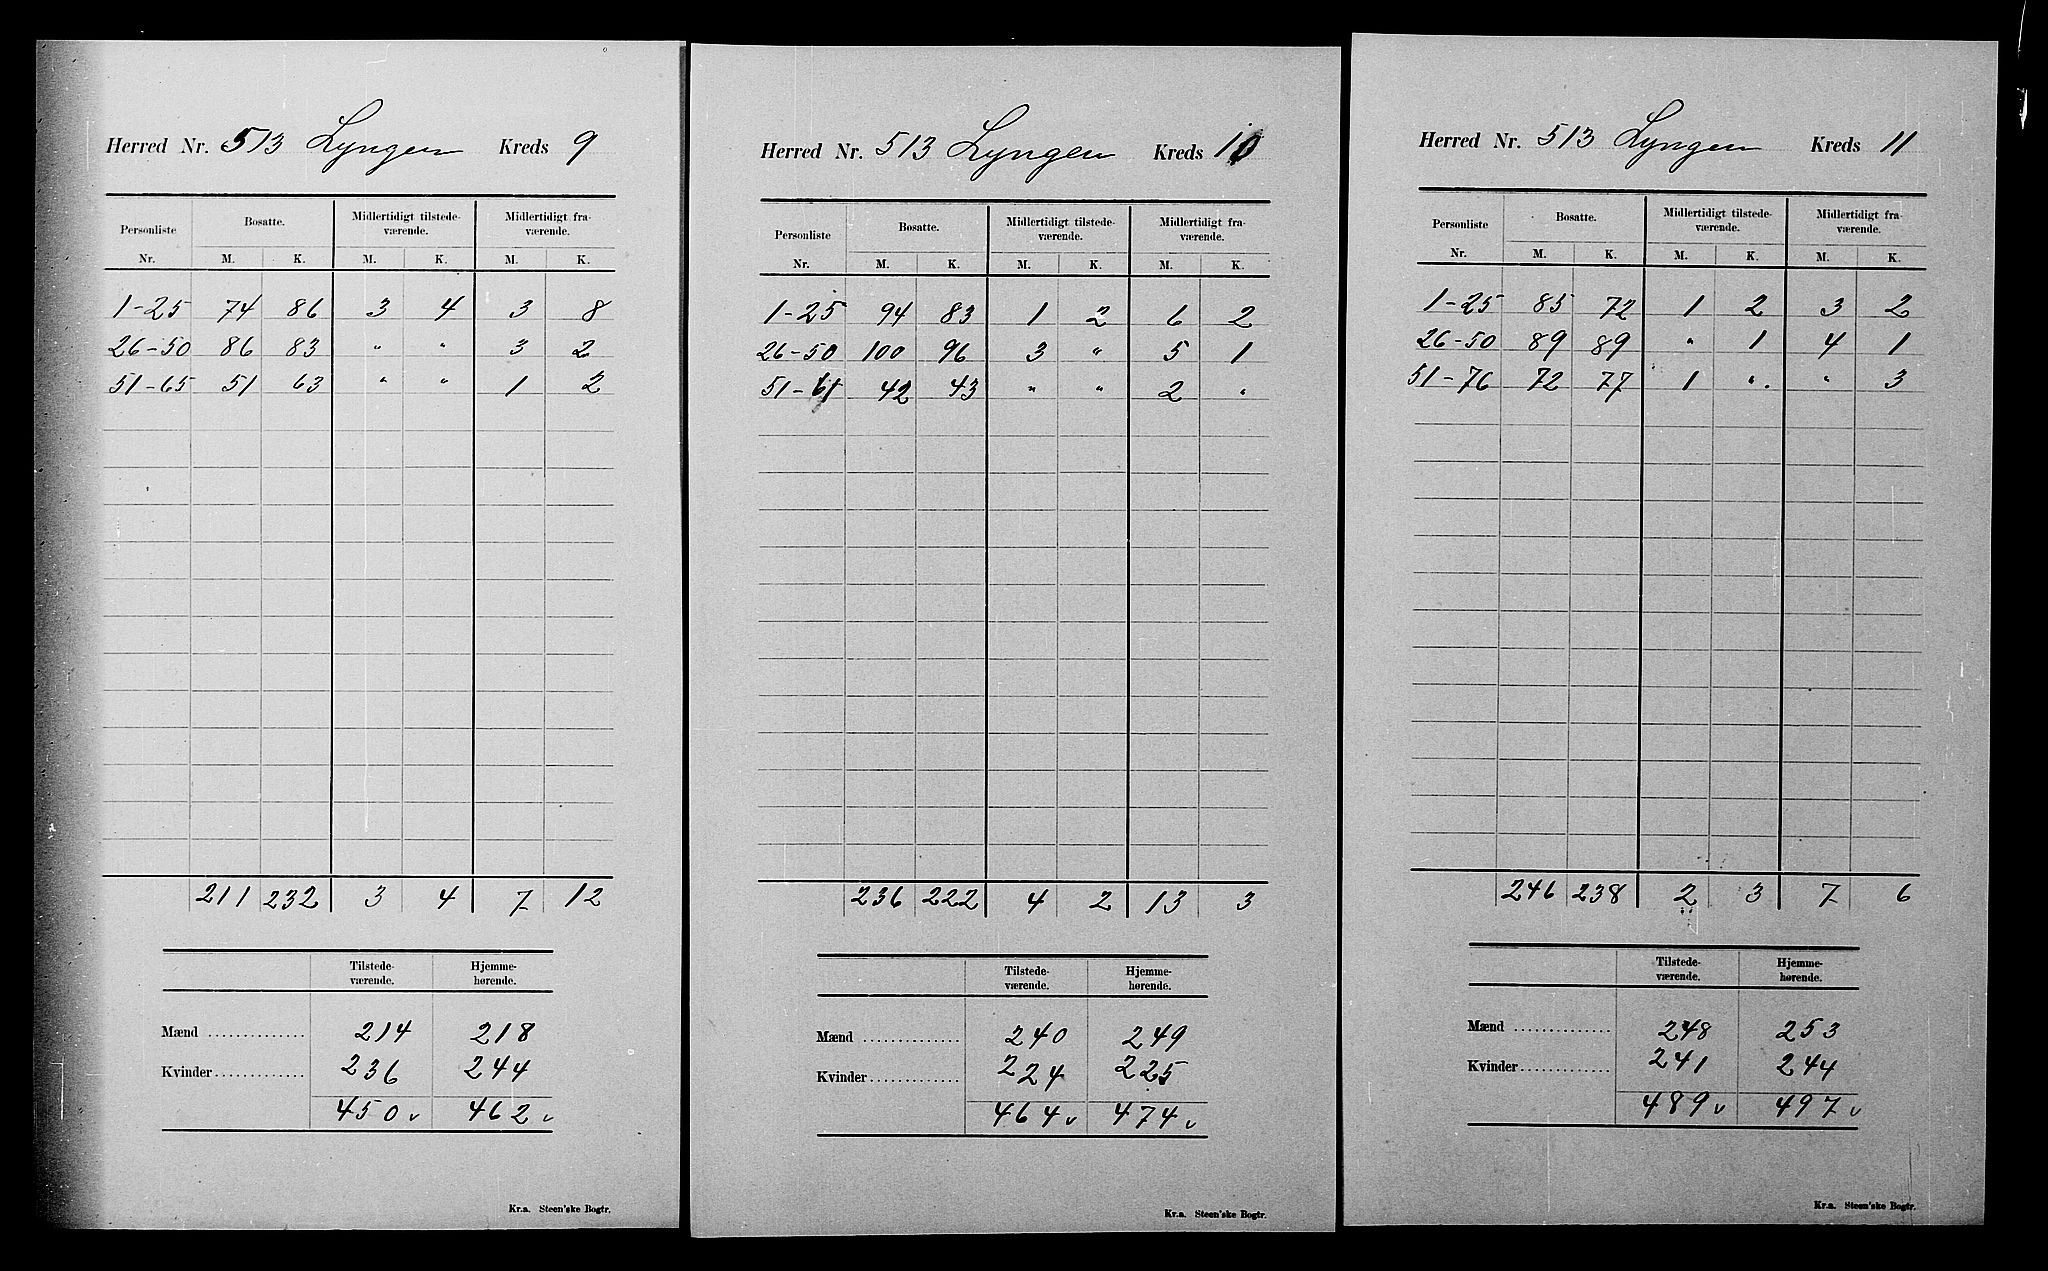 Herred Nr. 513 Lyngen Kreds 9
Personliste Bosatte. Midlertidigt tilstede-værende. Midlertidigt fra-værende.
Nr. M. K. M. K. M. K.
1-25 74 86 3 4 3 8
26-50 86 83 " " 3 2
51-65 51 63 " " 1 2
211 232 3 4 7 12
Tilstede-værende. Hjemme-hørende.
Mænd .............. 214 218
Kvinder ............. 236 244
450 v 462 v
Kr.a. Steen'ske Bogtr.
Herred Nr. 513 Lyngen Kreds 10
Personliste Bosatte. Midlertidigt tilstede-værende. Midlertidigt fra-værende.
Nr. M. K. M. K. M. K.
1-25 94 83 1 2 6 2
26-50 100 96 3 " 5 1
51-61 42 43 " " 2 "
236 222 4 2 13 3
Tilstede-værende. Hjemme-hørende.
Mænd .............. 240 249
Kvinder ............. 224 225
464 v 474 v
Kr.a. Steen'ske Bogtr.
Herred Nr. 513 Lyngen Kreds 11
Personliste Bosatte. Midlertidigt tilstede-værende. Midlertidigt fra-værende.
Nr. M. K. M. K. M. K.
1-25 85 72 1 2 3 2
26-50 89 89 " 1 4 1
51-76 72 77 1 " " 3
246 238 2 3 7 6
Tilstede-værende. Hjemme-hørende.
Mænd .............. 248 253
Kvinder ............. 241 244
489 v 497 v
Kr.a. Steen'ske Bogtr.